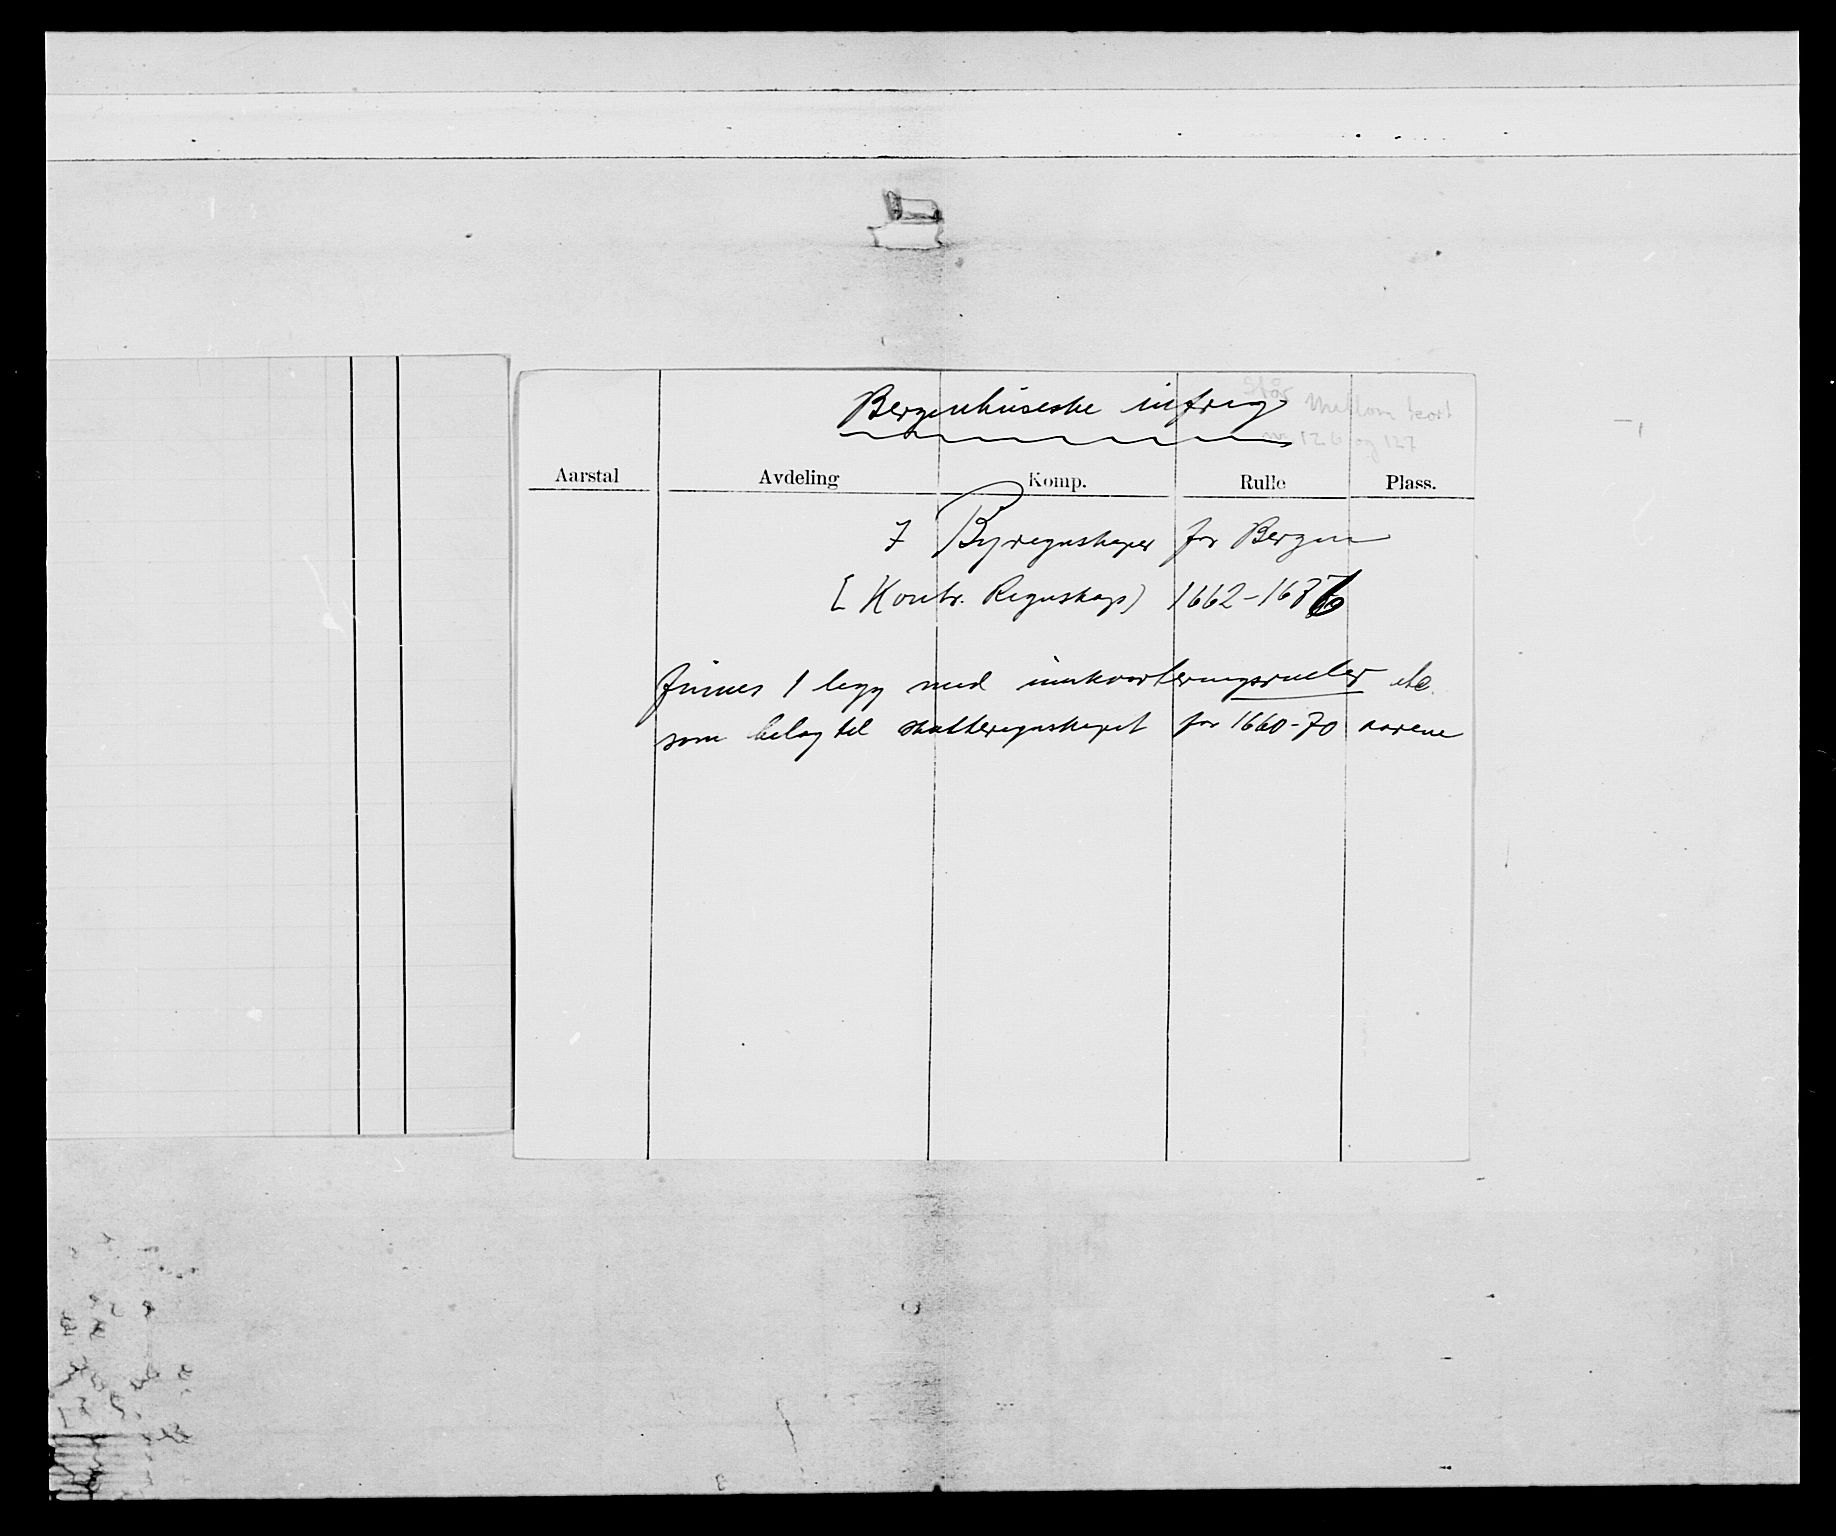 Bergenhuseske inf.reg
Står mellom kort
nr 126 og 127
Aarstal Avdeling Komp. Rulle Plass.
I Byregnskaper for Bergen
[Kontr. Regnskap) 1662-16
finnes 1 legg med innkvarteringsruller etc.
som bilag til skatteregnskapet for 1660-70 aarene